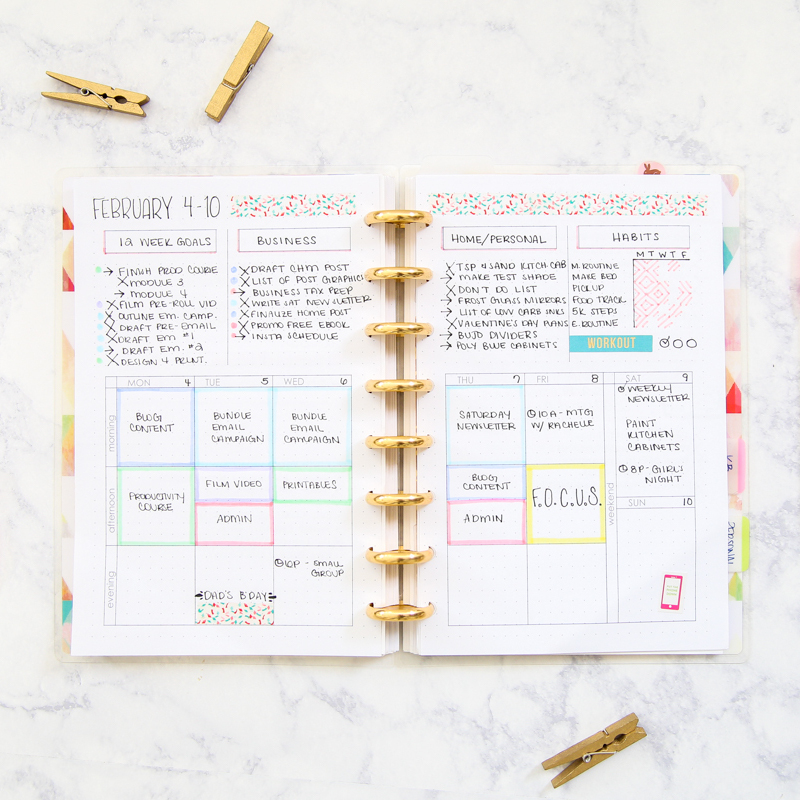 FEBRUARY 4-10
12 WEEK GOALS
FINISH PROD COURSE
MODULE 3
MODULE 4
FILM PRE-ROLL VID
OUTLINE EM. CAMP.
DRAFT PRE-EMAIL
DRAFT EM #1
DRAFT EM. #2
DESIGN 4 PRINT.
BUSINESS
DRAFT CHTM POST
LIST OF POST GRAPHICS
BUSINESS TAX PREP
WRITE SAT NEWSLETTER
FINALIZE HOME POST
PROMO FREE EBOOK
INSTA SCHEDULE
MON 4
TUE 5
WED 6
morning
BLOG
CONTENT
BUNDLE
EMAIL
CAMPAIGN
BUNDLE
EMAIL
CAMPAIGN
afternoon
PRODUCTIVITY
COURSE
FILM VIDEO
ADMIN
PRINTABLES
evening
DAD'S B'DAY
6P - SMALL
GROUP
HOME/PERSONAL
TSP & SAND KITCH CAB
MAKE TEST SHADE
DON'T DO LIST
FROST GLASS MIRRORS
LIST OF LOW CARB LINKS
VALENTINE'S DAY PLANS
BUJO DIVIDERS
POLY BLUE CABINETS
HABITS
M T W T F
M. ROUTINE
MAKE BED
PICKUP
FOOD TRACK
5K STEPS
E. ROUTINE
WORKOUT
THU 7
FRI 8
SAT 9
SATURDAY
NEWSLETTER
10A - MTG
W/ RACHELLE
WEEKLY
NEWSLETTER
PAINT
KITCHEN
CABINETS
8P - GIRL'S
NIGHT
BLOG
CONTENT
ADMIN
F.O.C.U.S.
weekend
SUN 10
PERSONAL